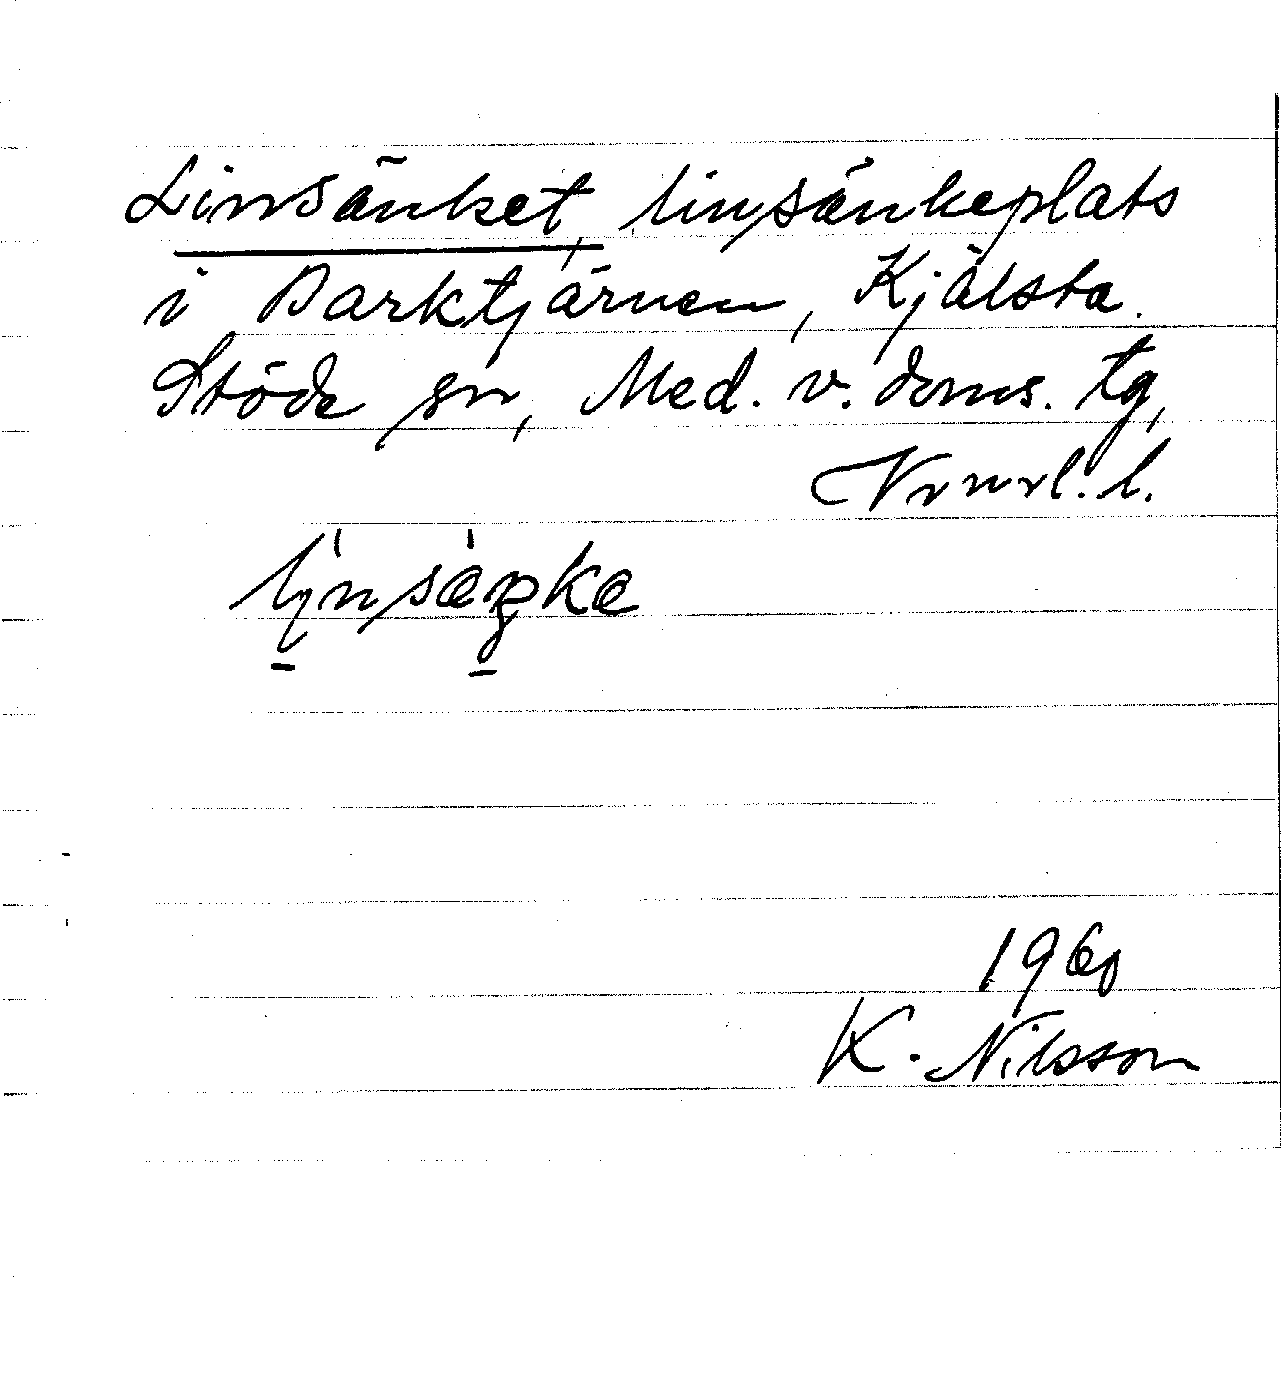 Linsänket, linsänkeplats
i Barktjärnen, Kjälsta.
Stöde sn, Med. v. doms. tg,
l.
1960
K. Nilsson